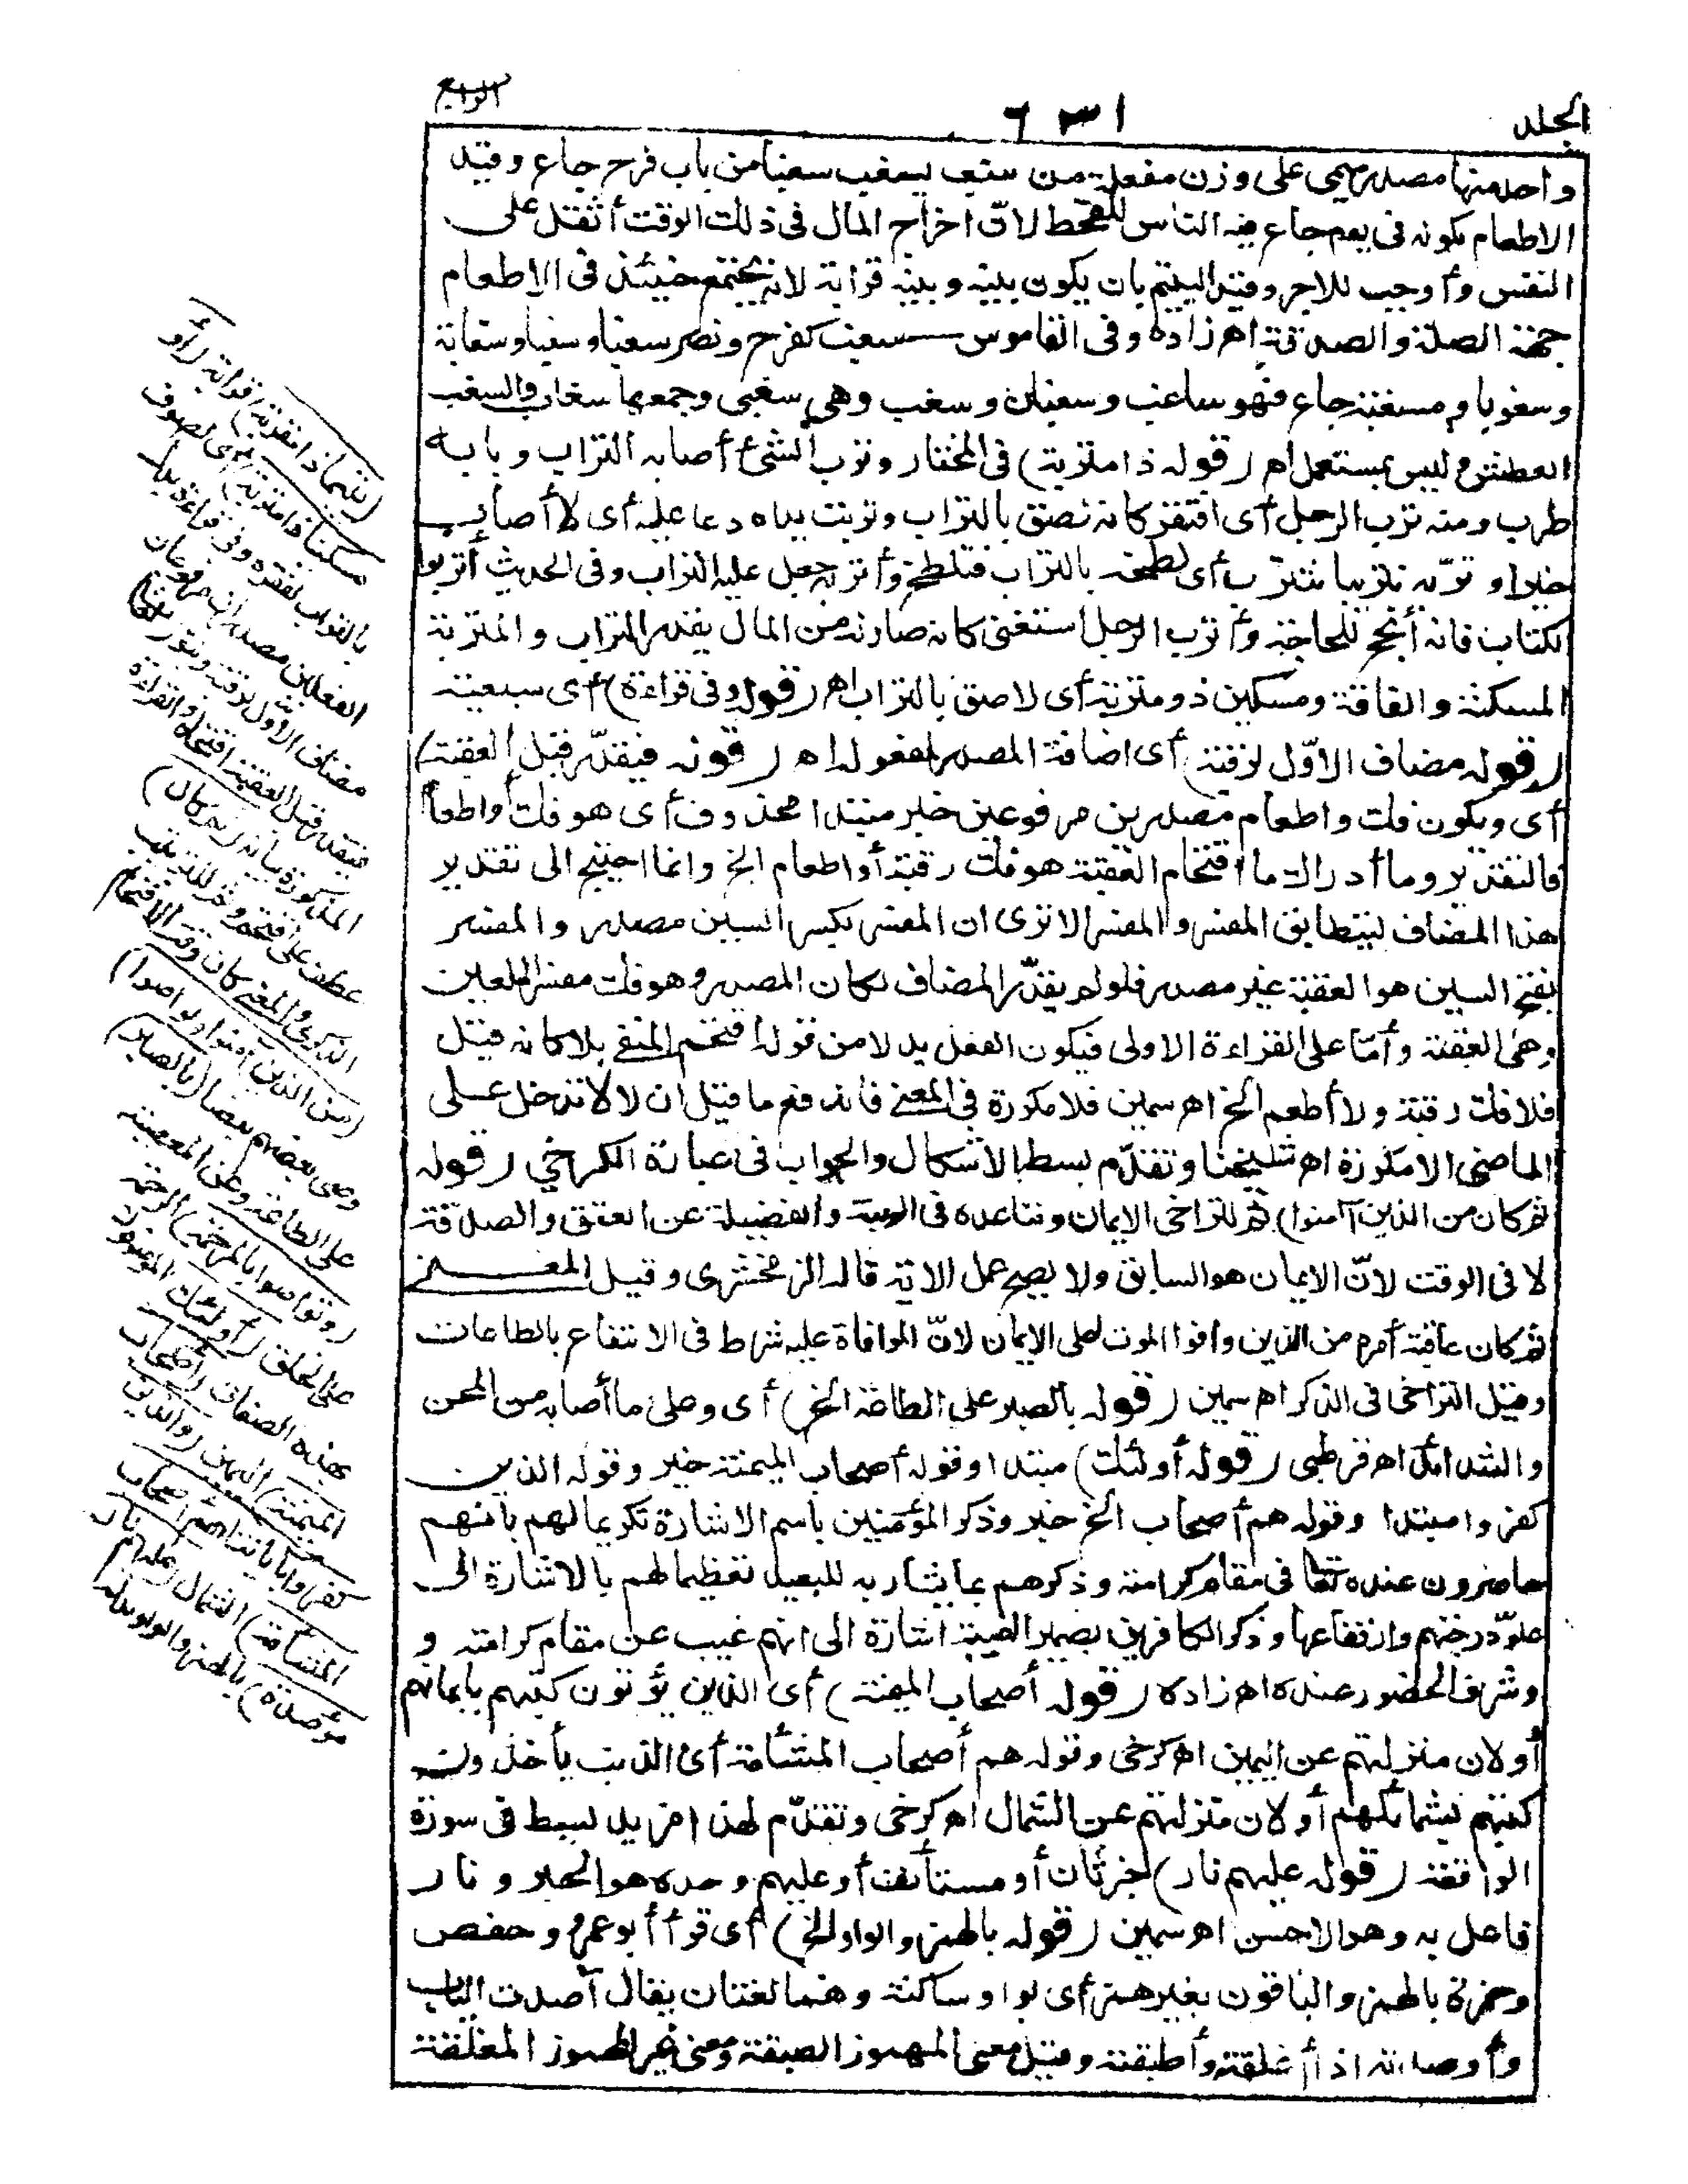 الجلد
٦٣١
الرابع
واحد منها مصدر ميمي على وزن مفعلة من سغب يسغب سغبا من باب فرح جاع وقيد
الاطعام بكونه في يوم جاع فيه الناس للقحط لانّ اخراج المال في ذلك الوقت أثقل على
النفس وأوجب للاجر وقيد اليتيم بان يكون بينه وبينه قرابة لانه يجتمع حينئذ في الاطعام
جهة الصلة والصدقة اهـ زاده وفي القاموس سغب كفرح ونصر سغبا وسغبا وسغابة
وسغوبا ومسغبة جاع فهو ساغب وسغبان وسغب وهي سغبى وجمعها سغاب والسغب
العطش وليس بمستعمل اهـ (قوله ذا متربة) في المختار وترب الشئ أصابه التراب وبابه
طرب ومنه ترب الرجل أي افتقر كانه لصق بالتراب وتربت يداه دعا عليه أي لا أصاب
خيرا وتربه تتريبا فتترب أي لطخه بالتراب فتلطخ وأتربه جعل عليه التراب وفي الحديث أتربوا
الكتاب فانه أنجح للحاجة وأترب الرجل استغنى كانه صار له من المال بقدر التراب والمتربة
المسكنة والفاقة ومسكين ذو متربة أي لاصق بالتراب اهـ (قوله وفي قراءة) أي سبعية
(قوله مضاف الاوّل لرقبة) أي اضافة المصدر لمفعوله اهـ (قوله فيقدّر قبل العقبة)
أي ويكون فك واطعام مصدرين مرفوعين خبر مبتدا محذوف أي هو فك أو اطعام
فالتقدير وما أدراك ما اقتحام العقبة هو فك رقبة أو اطعام الخ وانما احتيج الى تقدير
هذا المضاف ليتطابق المفسر والمفسر الا ترى ان المفسر بكسر السين مصدر والمفسر
بفتح السين هو العقبة غير مصدر فلو لم يقدّر المضاف لكان المصدر وهو فك مفسرا للعين
وهي العقبة وأمّا على القراءة الاولى فيكون الفعل بدلا من قوله اقتحم المنفي بلا كانه قيل
فلا فك رقبة ولا أطعم الخ اهـ سمين فلا مكررة في المعنى فاندفع ما قيل ان لا لا تدخل على
الماضي الا مكررة اهـ شيخنا وتقدّم بسط الاشكال والجواب في عبارة الكرخي (قوله
ثم كان من الذين آمنوا) ثم للتراخي الايمان وتباعده في الرتبة والفضيلة عن العتق والصدقة
لا في الوقت لانّ الايمان هو السابق ولا يصح عمل الا به قاله الزمخشري وقيل المعنى
ثم كان عاقبة أمره من الذين وافوا الموت على الايمان لانّ الموافاة عليه شرط في الانتفاع بالطاعات
وقيل التراخي في الذكر اهـ سمين (قوله بالصبر على الطاعة الخ) أي وعلى ما أصابه من المحن
والشدائد اهـ قرطبي (قوله أولئك) مبتدا وقوله أصحاب الميمنة خبر وقوله الذين
كفروا مبتدا وقوله هم أصحاب الخ خبر وذكر المؤمنين باسم الاشارة تكريما لهم بانهم
حاضرون عنده تعالى في مقام كرامته وذكرهم بما يشار به للبعيد تعظيما لهم بالاشارة الى
علوّ درجتهم وارتفاعها وذكر الكافرين بضمير الغيبة اشارة الى انهم غيب عن مقام كرامته و
وشرف الحضور عنده اهـ زاده (قوله أصحاب الميمنة) أي الذين يؤتون كتبهم بايمانهم
أو لان منزلتهم عن اليمين اهـ كرخي وقوله هم أصحاب المشأمة أي الذين يأخذون
كتبهم بشمائلهم أو لان منزلتهم عن الشمال اهـ كرخي وتقدّم لهذا مزيد بسط في سورة
الواقعة (قوله عليهم نار) خبر ثان أو مستأنف أو عليهم وحده هو الخبر و نار
فاعل به وهو الاحسن اهـ سمين (قوله بالهمز والواو الخ) أي قرأ أبو عمرو وحفص
وحمزة بالهمز والباقون بغير همز أي بواو ساكنة وهما لغتان يقال آصدت الباب
وأوصدته اذا أغلقته وأطبقته وقيل معنى المهموز المطبقة ومعنى غير المهموز المغلقة
(يتيما ذا مقربة) قرابة (أو
مسكينا ذا متربة) أي لصوق
بالتراب لفقره وفي قراءة بدل
الفعلين مصدران مرفوعان
مضاف الاول لرقبة وينون الثاني
فيقدر قبل العقبة اقتحام والقراءة
المذكورة بيانه (ثم كان)
عطف على اقتحم وثم للترتيب
الذكرى والمعنى كان وقت الاقتحام
(من الذين آمنوا وتواصوا)
وصى بعضهم بعضا (بالصبر)
على الطاعة وعن المعصية
(وتواصوا بالمرحمة) الرحمة
على الخلق (أولئك) الموصوفون
بهذه الصفات (أصحاب
الميمنة) اليمين (والذين
كفروا بآياتنا هم أصحاب
المشأمة) الشمال (عليهم نار
مؤصدة) بالهمز والواو بدله